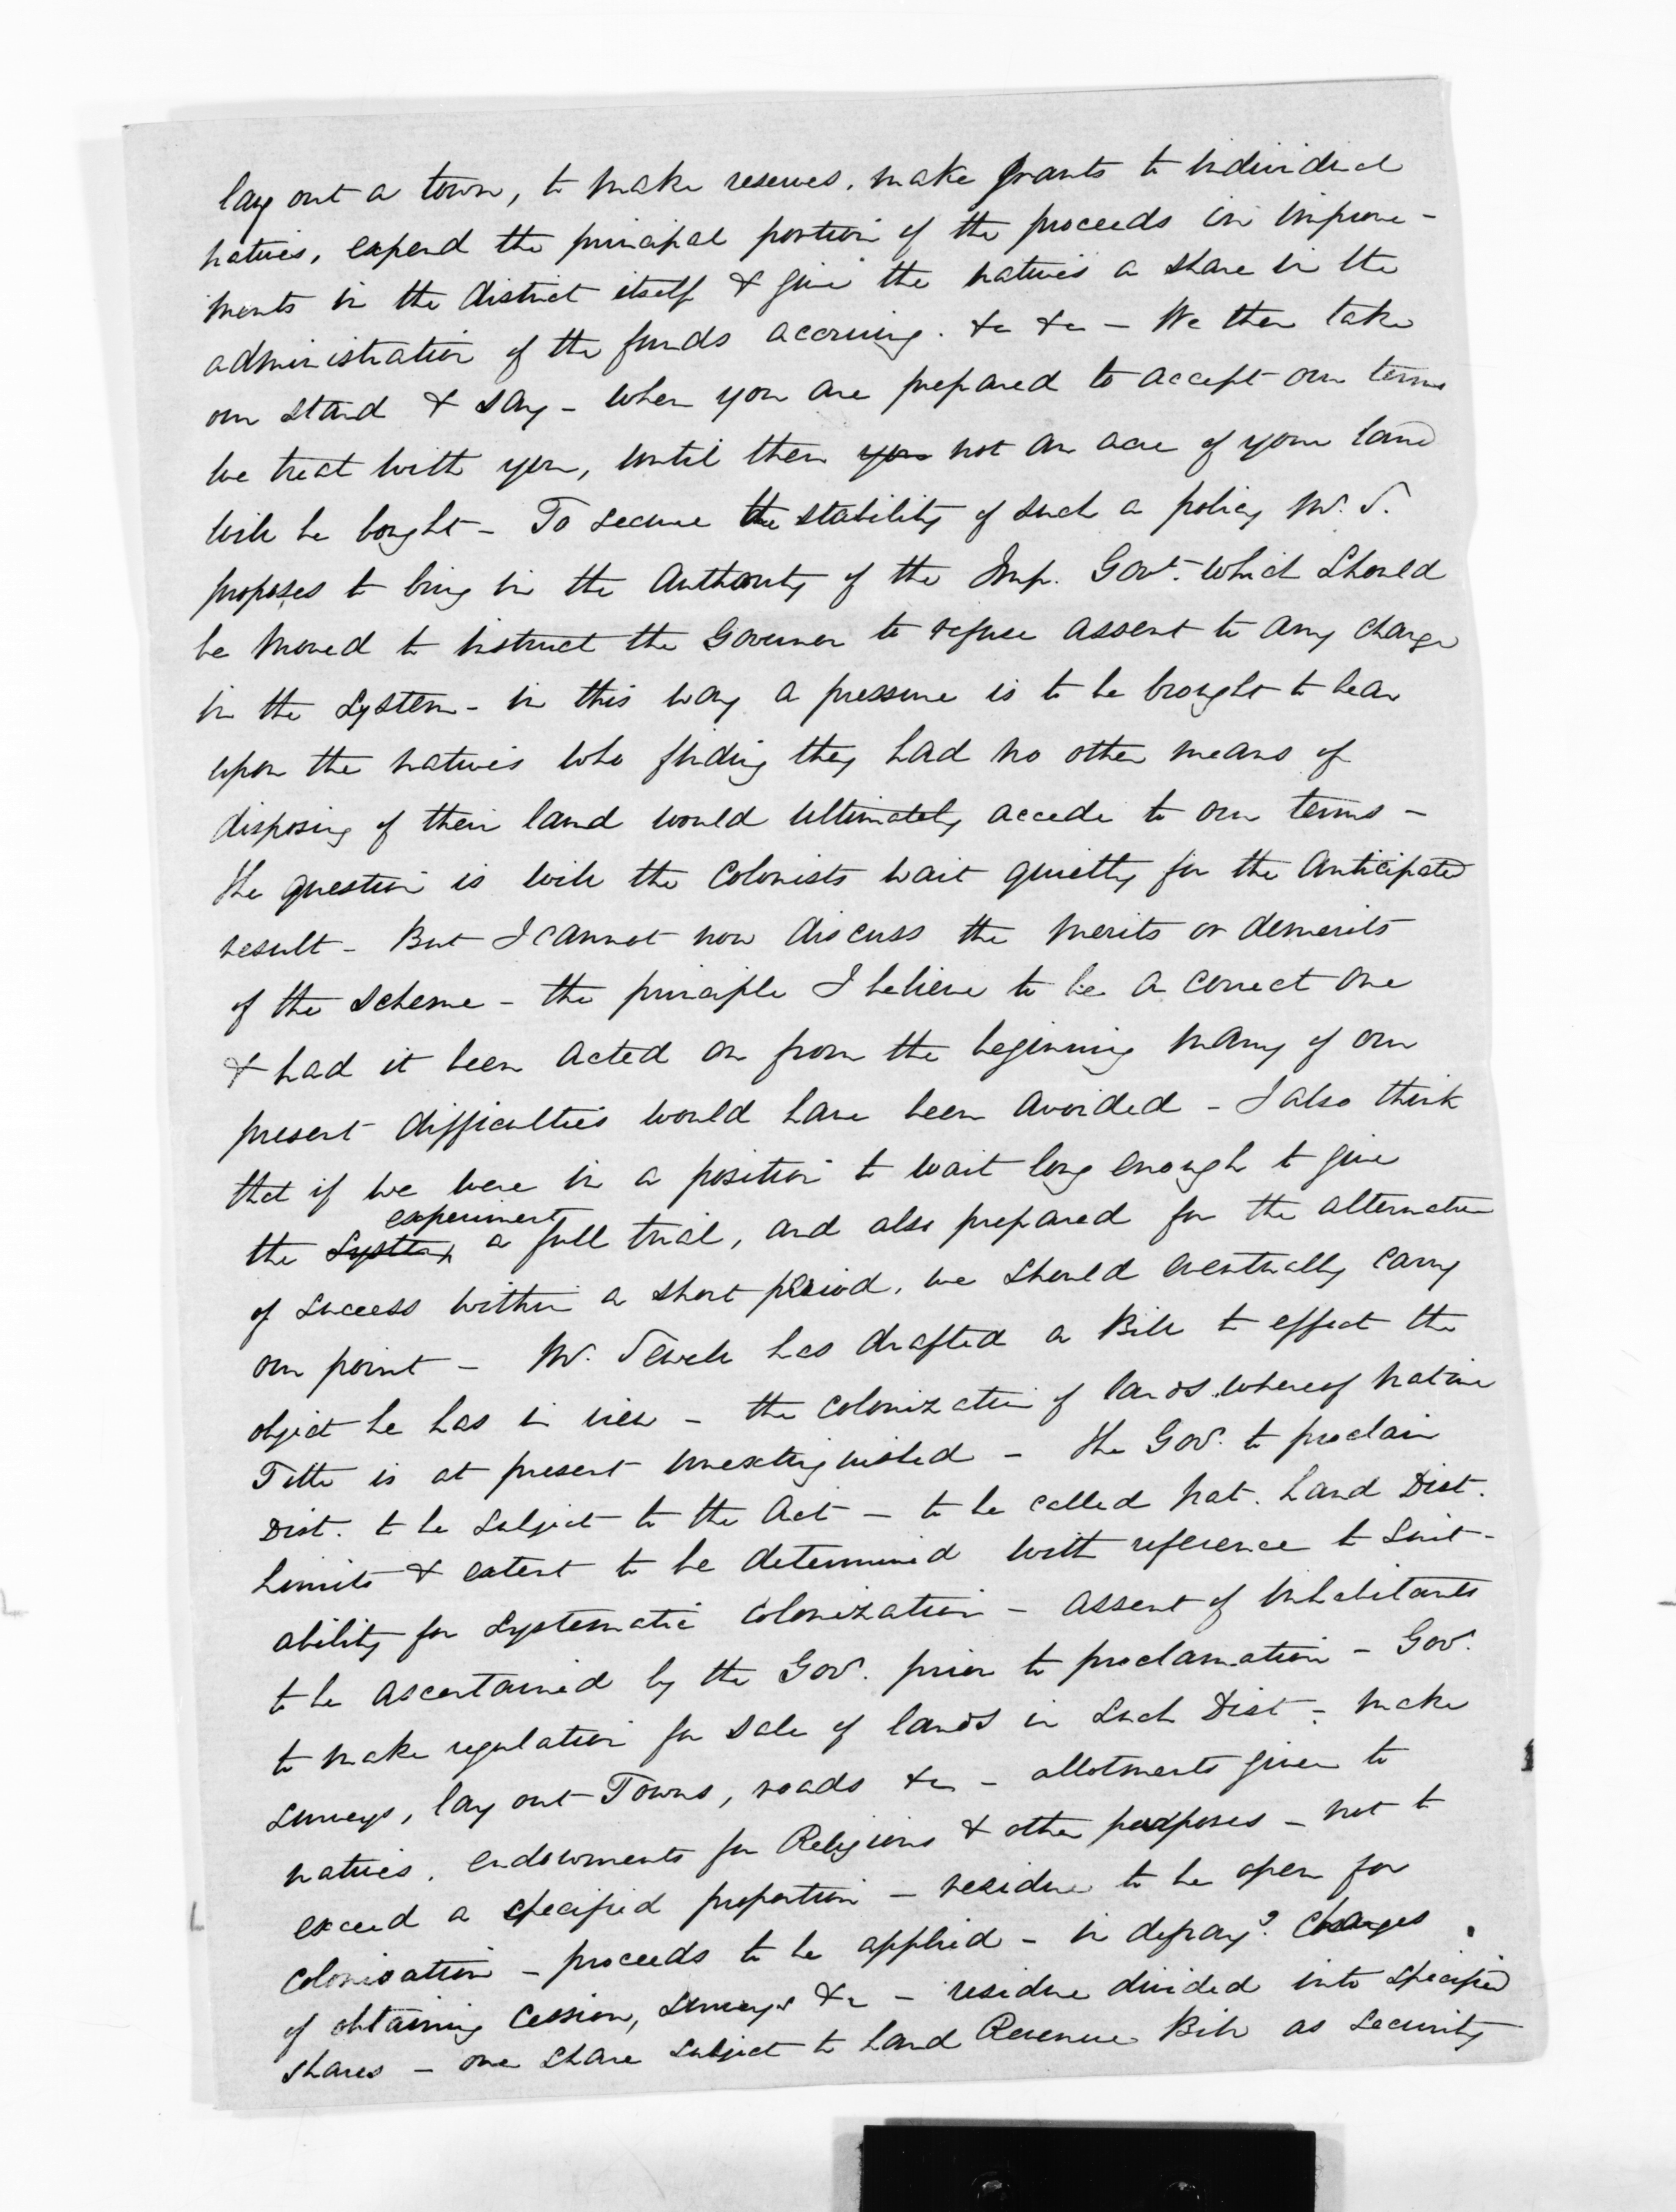 lay out a town, to make reserves, make grants to individual
natives, expend the principal portion of the proceeds in improve-
ments in the district itself & give the natives a share in the
administration of the funds accruing. &c &c - We then take
our stand & say - when you are prepared to accept our terms
we treat with you, until then you not an acre of your land
will be bought - To secure the stability of such a policy Mr. S.
proposes to bring in the authority of the Imp. Govt. which should
be moved to instruct the Governor to refuse assent to any change
in the system - in this way a pressure is to be brought to bear
upon the natives who finding they had no other means of
disposing of their land would ultimately accede to our terms -
The question is will the Colonists wait quietly for the anticipated
result - But I cannot now discuss the merits or demerits
of the scheme - the principle I believe to be a correct one
& had it been acted on from the beginning many of our
present difficulties would have been avoided - I also think
that if we were in a position to wait long enough to give
experiment
the system a full trial, and also prepared for the alternative
of success within a short period, we should eventually carry
our point - Mr. Sewell has drafted a Bill to effect the
object he has in view - the colonization of lands whereof native
Title is at present unextinguished - The Gov. to proclaim
Dist. to be subject to the Act - to be called Nat. Land Dist.
Limits & extent to be determined with reference to suit-
ability for systematic colonization - assent of inhabitants
to be ascertained by the Gov. prior to proclamation - Gov.
to make regulation for sale of lands in such Dist - make
surveys, lay out Towns, roads &c - allotments given to
natives, endowments for Religious & other purposes - not to
exceed a specified proportion - residue to be open for
colonisation - proceeds to be applied - in defrayg. charges
of obtaining cession, surveys &c - residue divided into specified
shares - one share subject to Land Revenue Bill as security